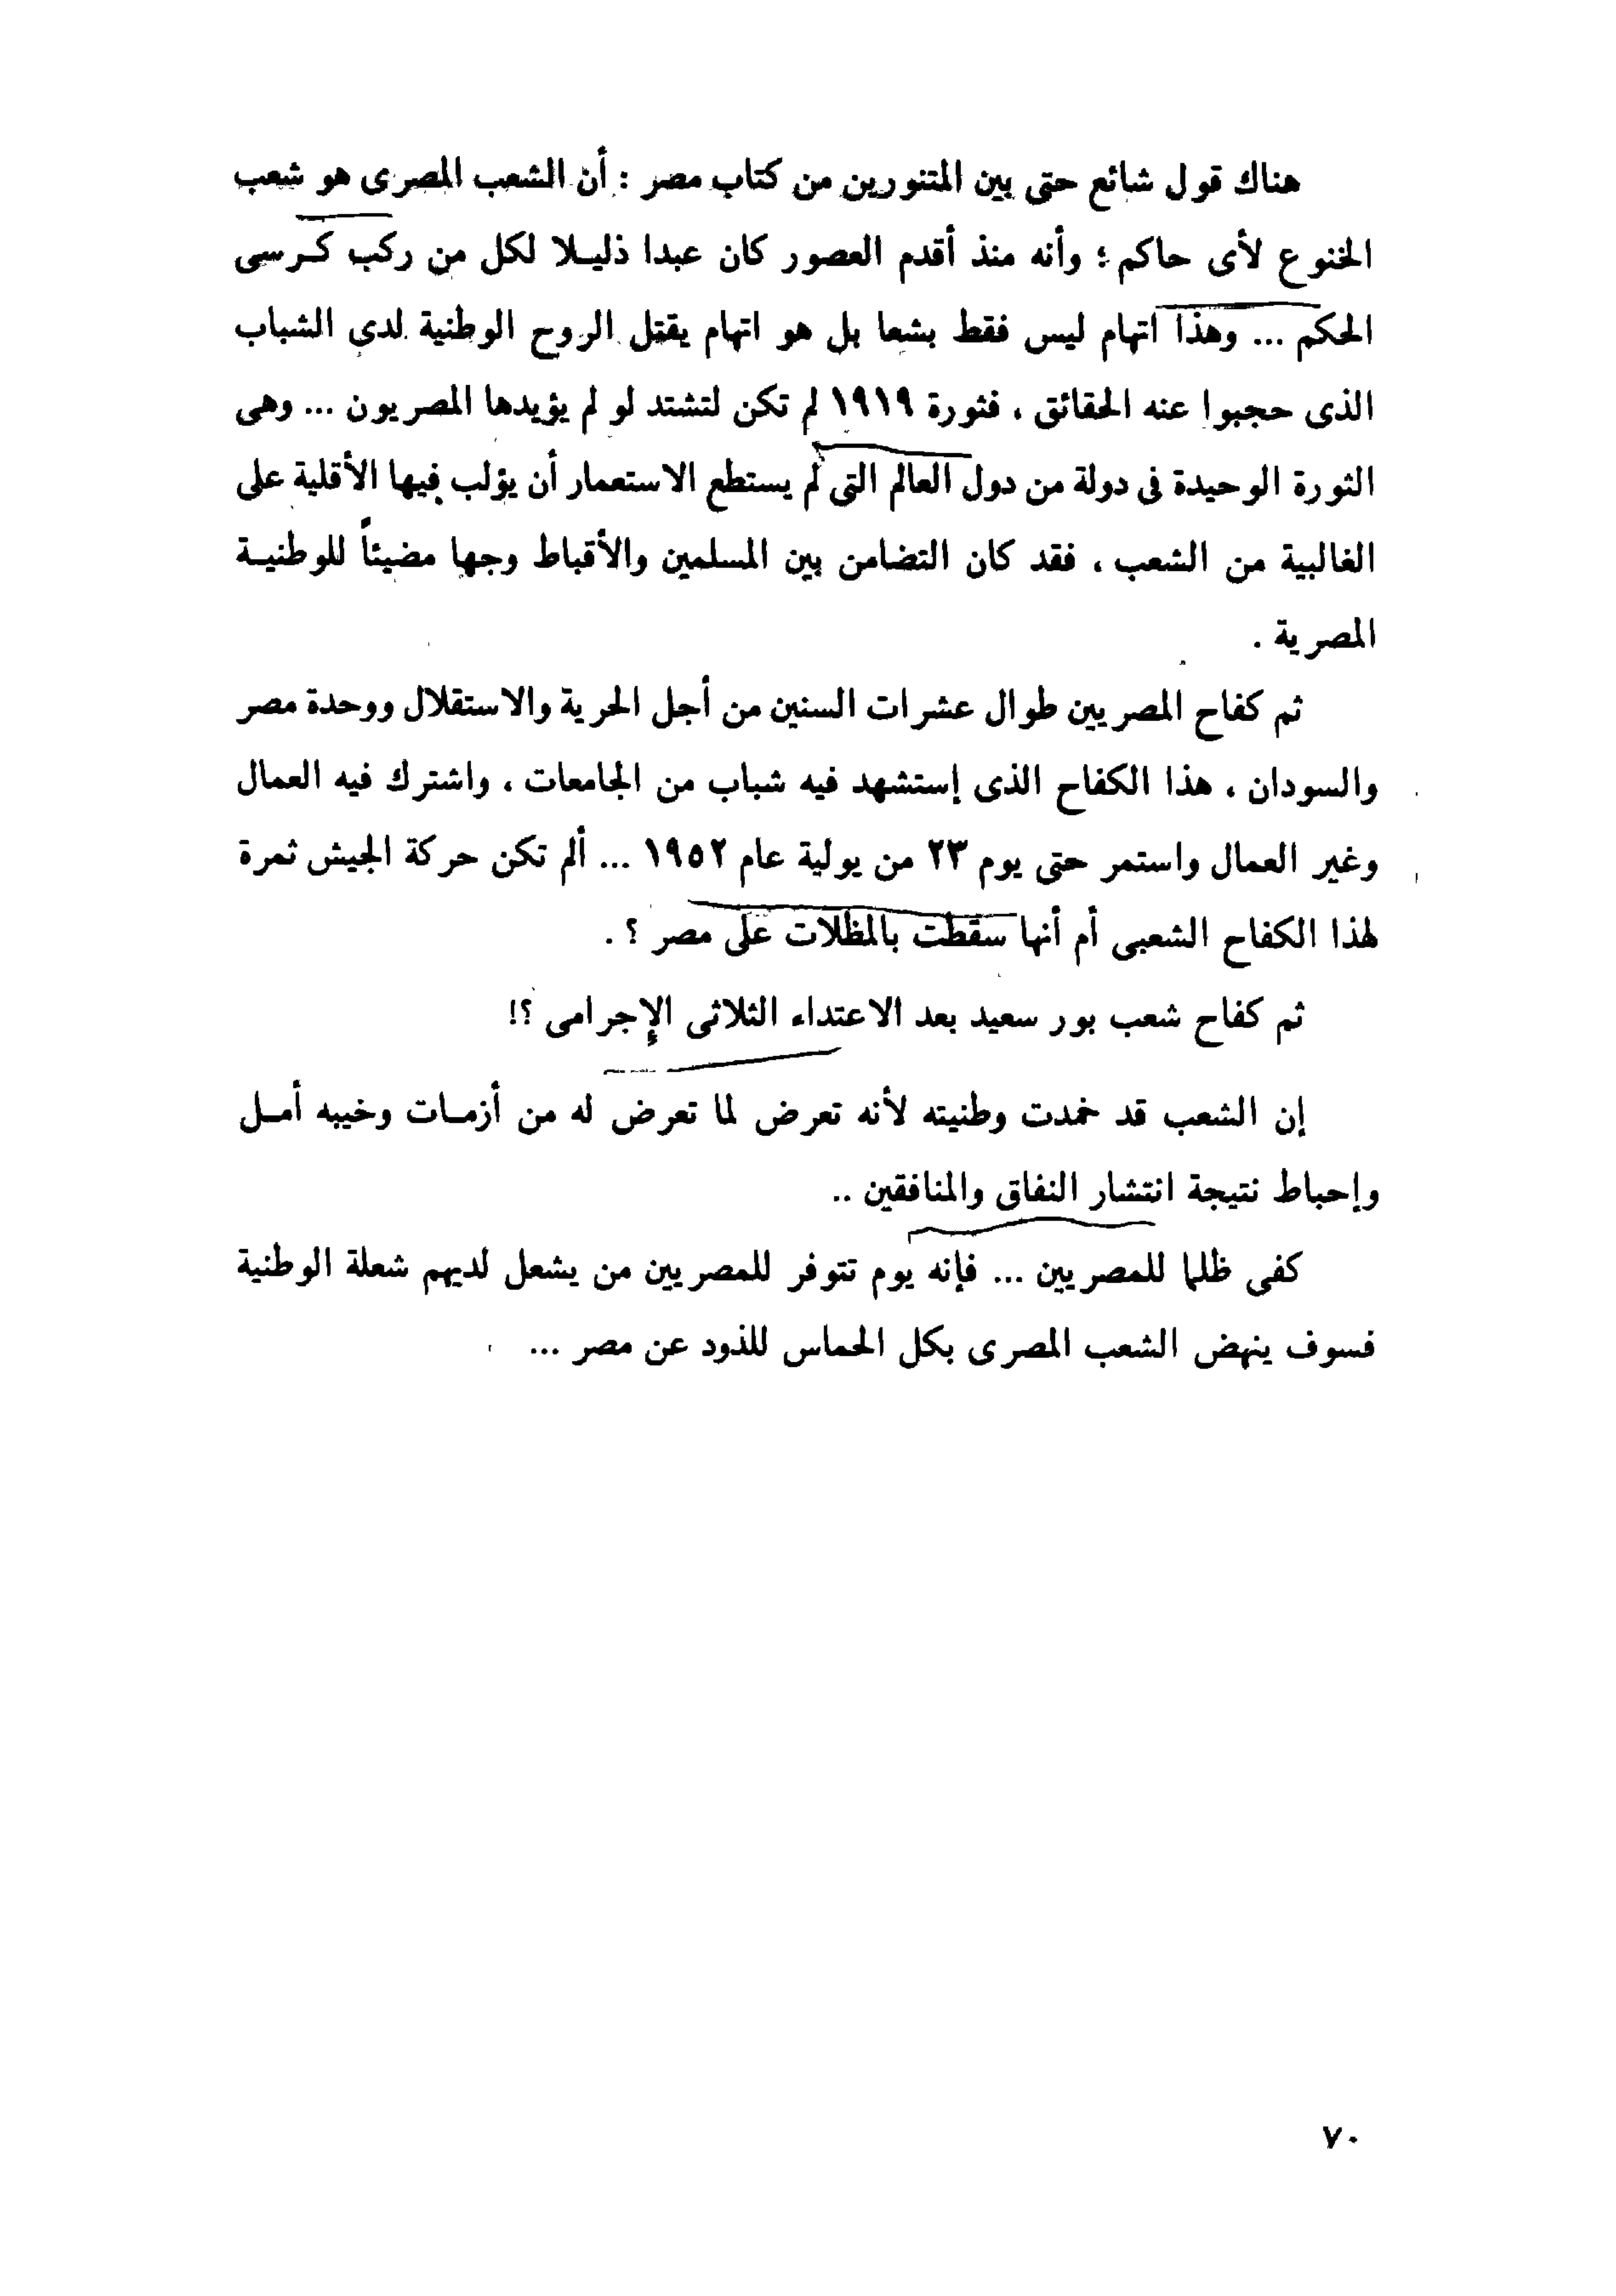 هناك قول شائع حتى بين المتنورين من كتاب مصر : أن الشعب المصرى هو شعب
الخنوع لأى حاكم ؛ وأنه منذ أقدم العصور كان عبدا ذليلا لكل من ركب كرسى
الحكم ... وهذا اتهام ليس فقط بشعا بل هو اتهام يقتل الروح الوطنية لدى الشباب
الذى حجبوا عنه الحقائق ، فثورة ١٩١٩ لم تكن لتشتد لو لم يؤيدها المصريون ... وهى
الثورة الوحيدة فى دولة من دول العالم التى لم يستطع الاستعمار أن يؤلب فيها الأقلية على
الغالبية من الشعب ، فقد كان التضامن بين المسلمين والأقباط وجها مضيئاً للوطنية
المصرية .
ثم كفاح المصريين طوال عشرات السنين من أجل الحرية والاستقلال ووحدة مصر
والسودان ، هذا الكفاح الذى إستشهد فيه شباب من الجامعات ، واشترك فيه العمال
وغير العمال واستمر حتى يوم ٢٣ من يولية عام ١٩٥٢ ... ألم تكن حركة الجيش ثمرة
لهذا الكفاح الشعبى أم أنها سقطت بالمظلات على مصر ؟ .
ثم كفاح شعب بور سعيد بعد الاعتداء الثلاثى الإجرامى ؟!
إن الشعب قد خمدت وطنيته لأنه تعرض لما تعرض له من أزمات وخيبه أمل
وإحباط نتيجة انتشار النفاق والمنافقين ..
كفى ظلما للمصريين ... فإنه يوم تتوفر للمصريين من يشعل لديهم شعلة الوطنية
فسوف ينهض الشعب المصرى بكل الحماس للذود عن مصر ...
٧٠